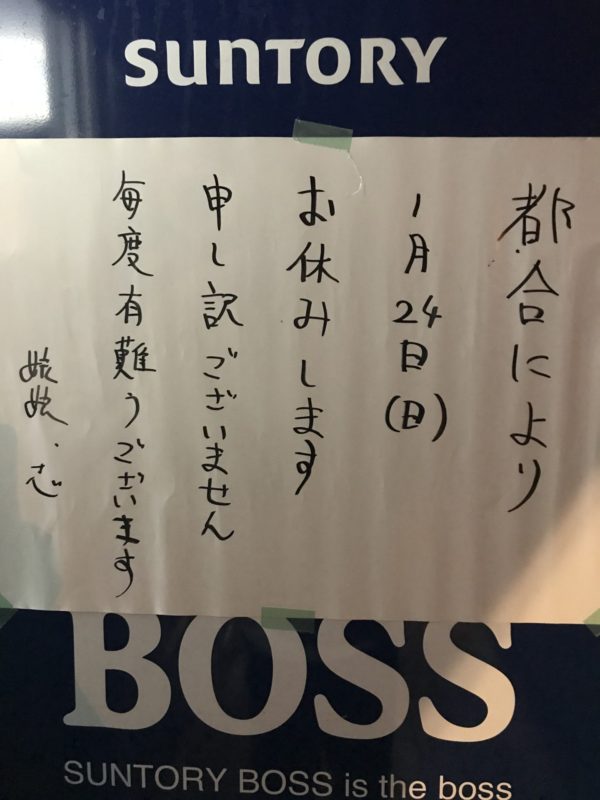 SUNTORY
都合により
1月24日(日)
お休みします
申し訳ございません
毎度有難うございます
BOSS
SUNTORY BOSS is the boss